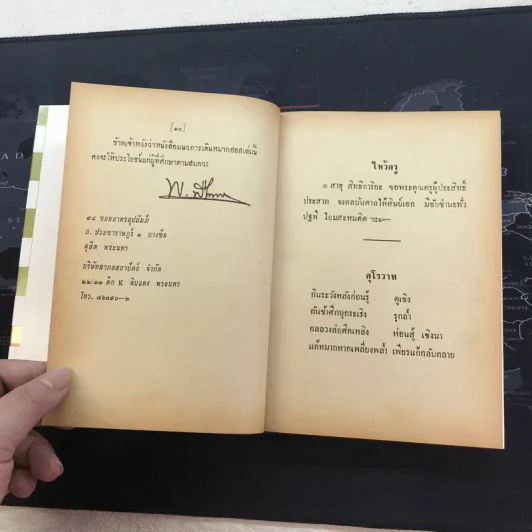 [๑๐]
ข้าพเจ้าหวังว่าหนังสือแนวการเดินหมากฮอสเล่มนี้
คงจะให้ประโยชน์แก่ผู้ที่ศึกษาตามสมควร
๙๔ ซอยอาทรอุปถัมภ์
ถ. ประชาราษฎร์ ๑ บางซื่อ
ดุสิต พระนคร
บริษัทสากลสถาปัตย์ จำกัด
๒๒/๑๑ ตึก K ดินแดง พระนคร
โทร. ๗๑๐๕๐—๒
ไหว้ครู
๏ สาธุ สิทธิการิยะ ขอพระคุณครูผู้ประสิทธิ์
ประสาท จงดลบันดาลให้ศิษย์เอก มีชัยชำนะทั่ว
ปฐพี โอมสะหมติด
คุโรวาท
กินระวังหลังก่อนรู้ ดูเชิง
กันข้าศึกบุกระเริง รุกล้ำ
กลลวงล่อศึกเหลิง ห่อนสู้ เชิงนา
แก้หมากหากเพลี่ยงพล้ำ เพียรแก้กลับกลาย